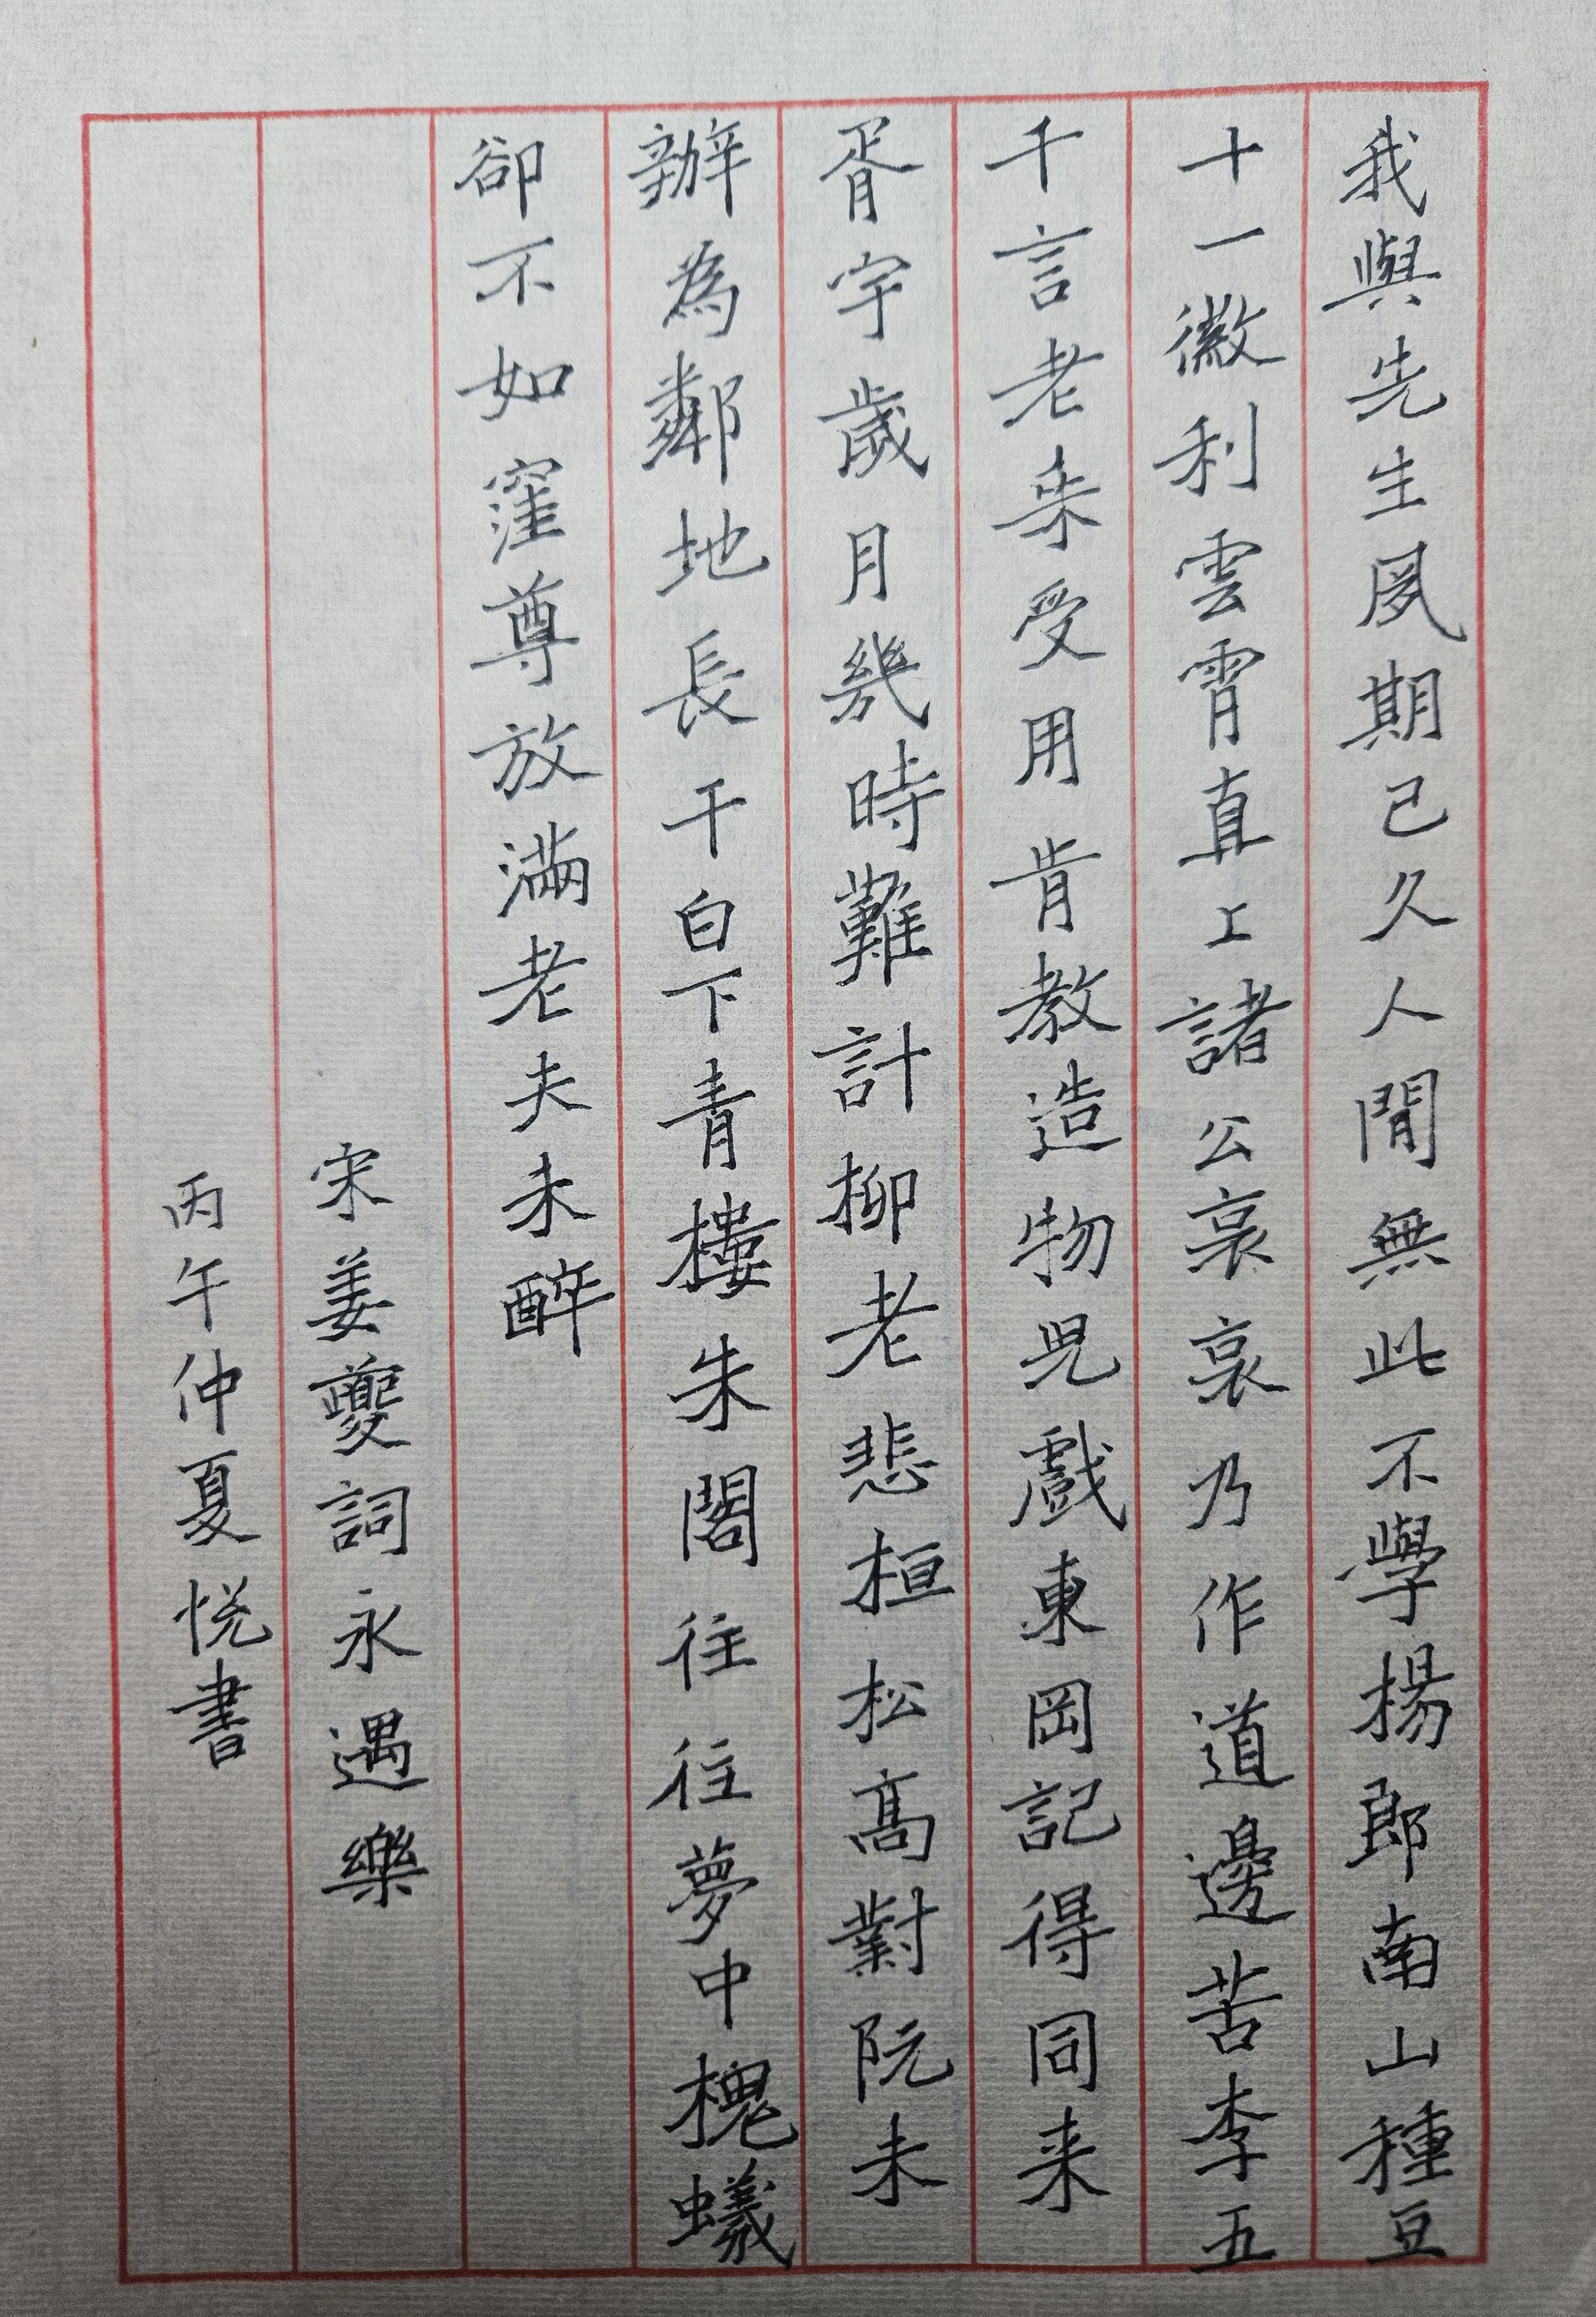 我與先生夙期已久人間無此不學楊郎南山種豆
十一徵利雲霄直上諸公衮衮乃作道邊苦李五
千言老来受用肯教造物兒戲東岡記得同来
胥宇歲月幾時難計柳老悲桓松高對阮未
辦為鄰地長干白下青樓朱閣往往夢中槐蟻
卻不如窪尊放滿老夫未醉
宋姜夔詞永遇樂
丙午仲夏悦書